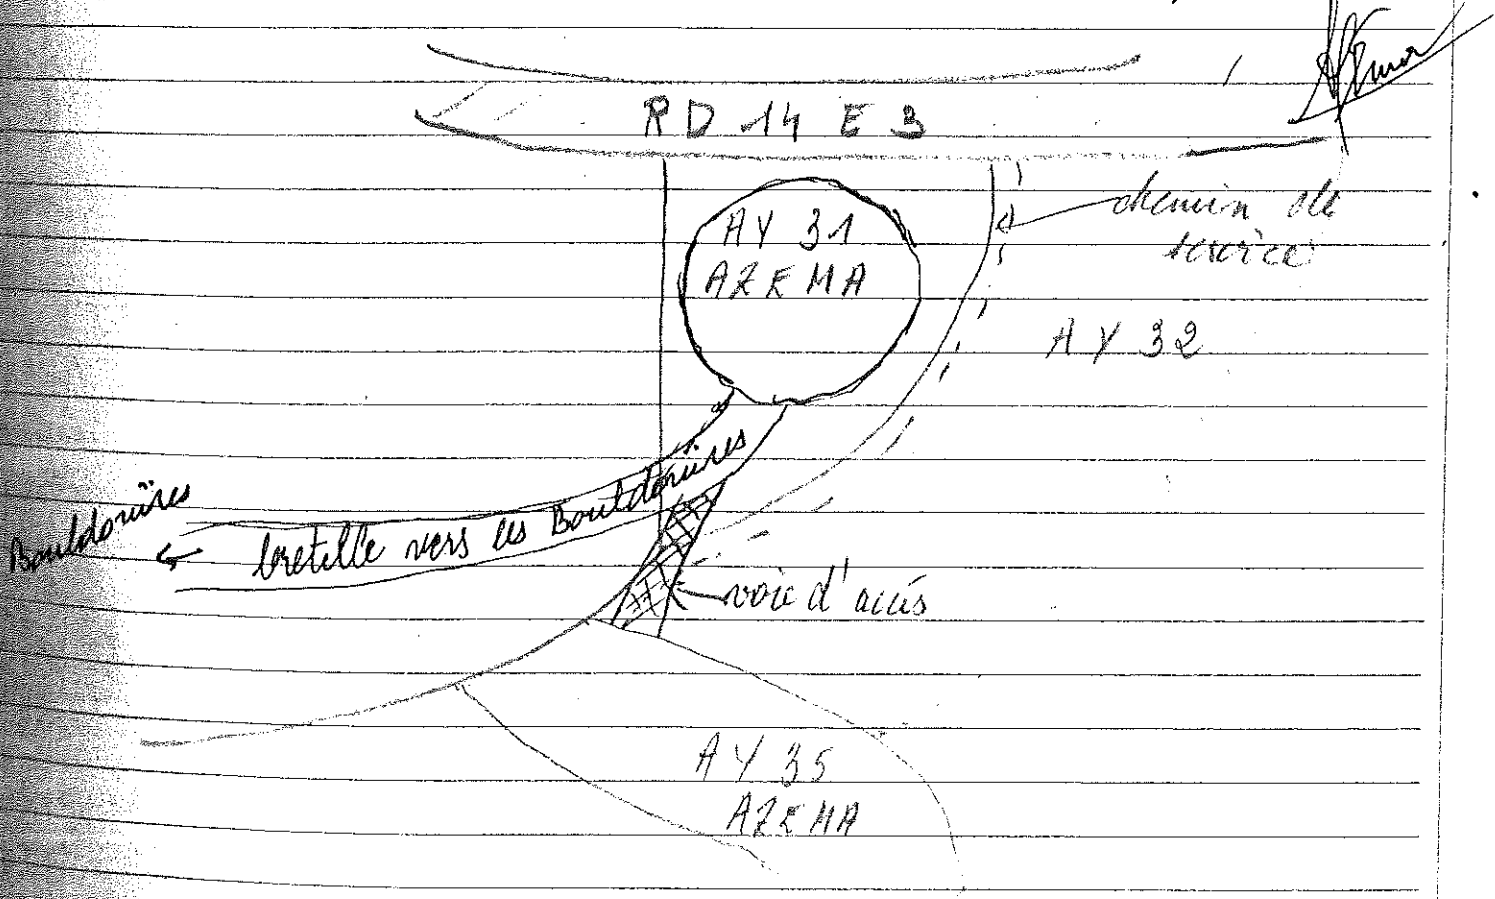 RD 14 E 3
AY 31
AZEMA
chemin de
service
AY 32
Bouldouïres
bretelle vers les Bouldouïres
voie d'accés
AY 35
AZEMA